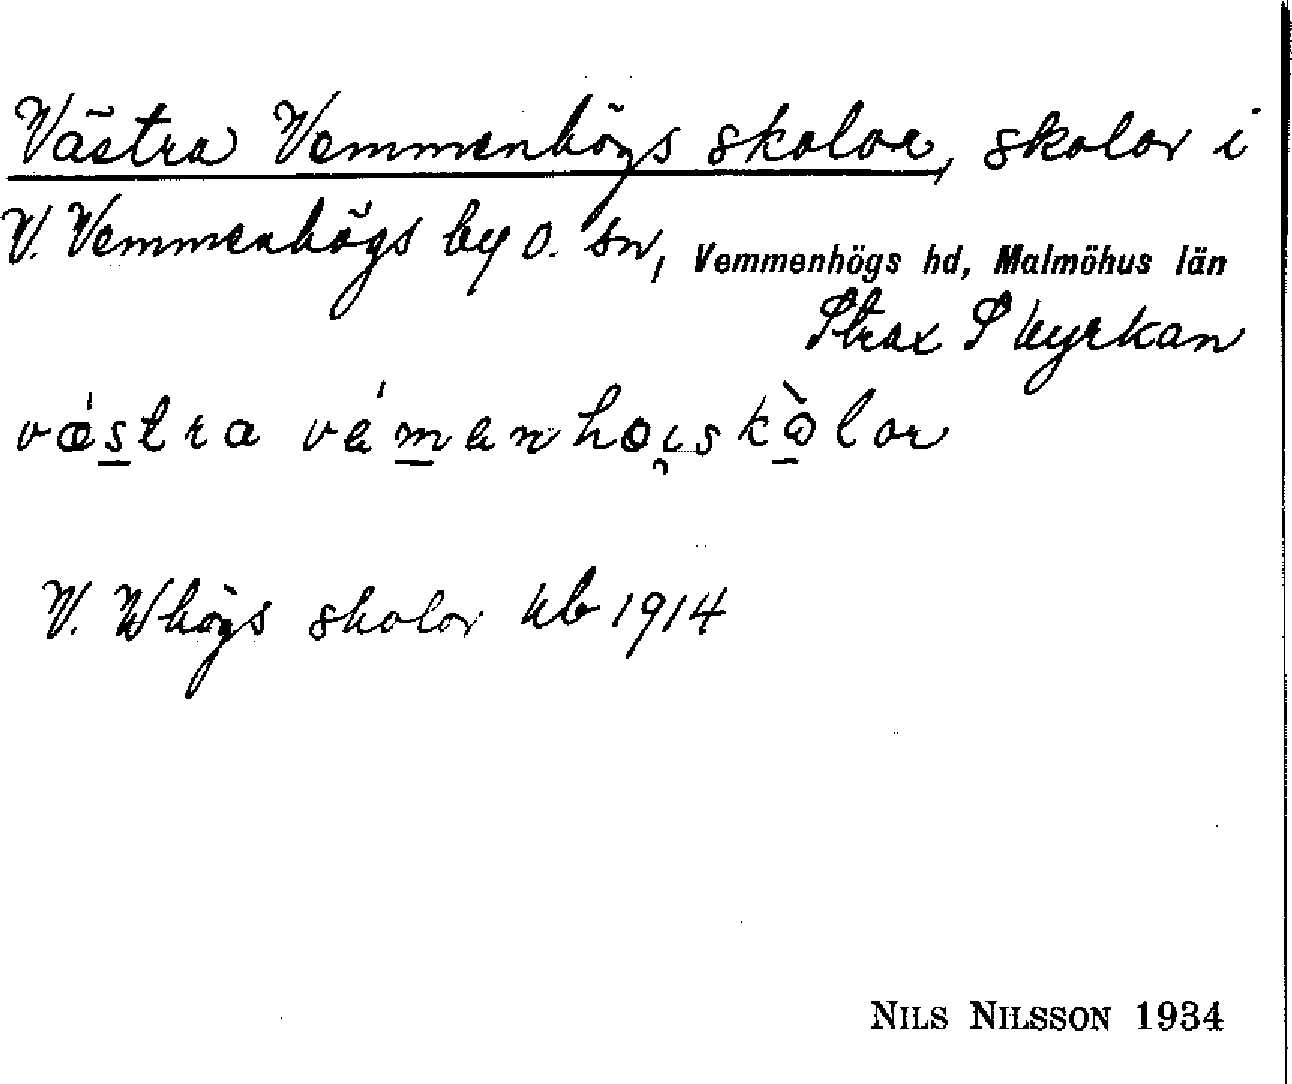 Västra Vemmenhögs skolor, skolor i
V. Vemmenhögs by o. sn, Vemmenhögs hd, Malmöhus län
Strax S kyrkan
vǽstra vémanhoısk̀olor
V. Whögs skolor kb 1914
NILS NILSSON 1934